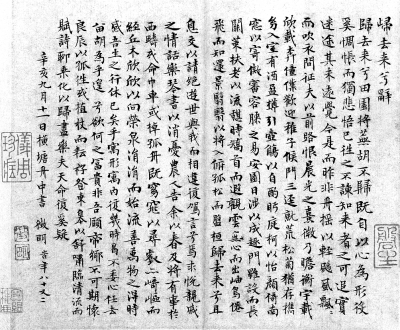 歸去来兮辭
歸去来兮田園將蕪胡不歸既自以心為形役
奚惆悵而獨悲悟已往之不諫知来者之可追實
迷途其未遠覺今是而昨非舟搖搖以輕颺風飄飄
而吹衣問征夫以前路恨晨光之熹微乃瞻衡宇載
欣載奔僮僕歡迎稚子候門三逕就荒松菊猶存攜
幼入室有酒盈樽引壺觴以自酌眄庭柯以怡顏倚南
窓以寄傲審容膝之易安園日涉以成趣門雖設而長
關策扶老以流憩時矯首而遐觀雲無心而出岫鳥倦
飛而知還景翳翳以將入撫孤松而盤桓歸去来兮且
息交以絕遊世與我而相違復駕言兮焉求悦親戚
之情話樂琴書以消憂農人告余以春及將有事於
西疇或命巾車或棹孤舟既窈窕以尋壑亦崎嶇而
經丘木欣欣以向榮泉涓涓而始流善萬物之得時
感吾生之行休已矣乎寓形宇內復幾時曷不委心任去
留胡為乎遑遑兮欲何之富貴非吾願帝鄉不可期懷
良辰以孤往或植杖而耘耔登東皋以舒嘯臨清流而
賦詩聊乘化以歸盡樂夫天命復奚疑
辛亥九月十一日橫塘舟中書 徵明